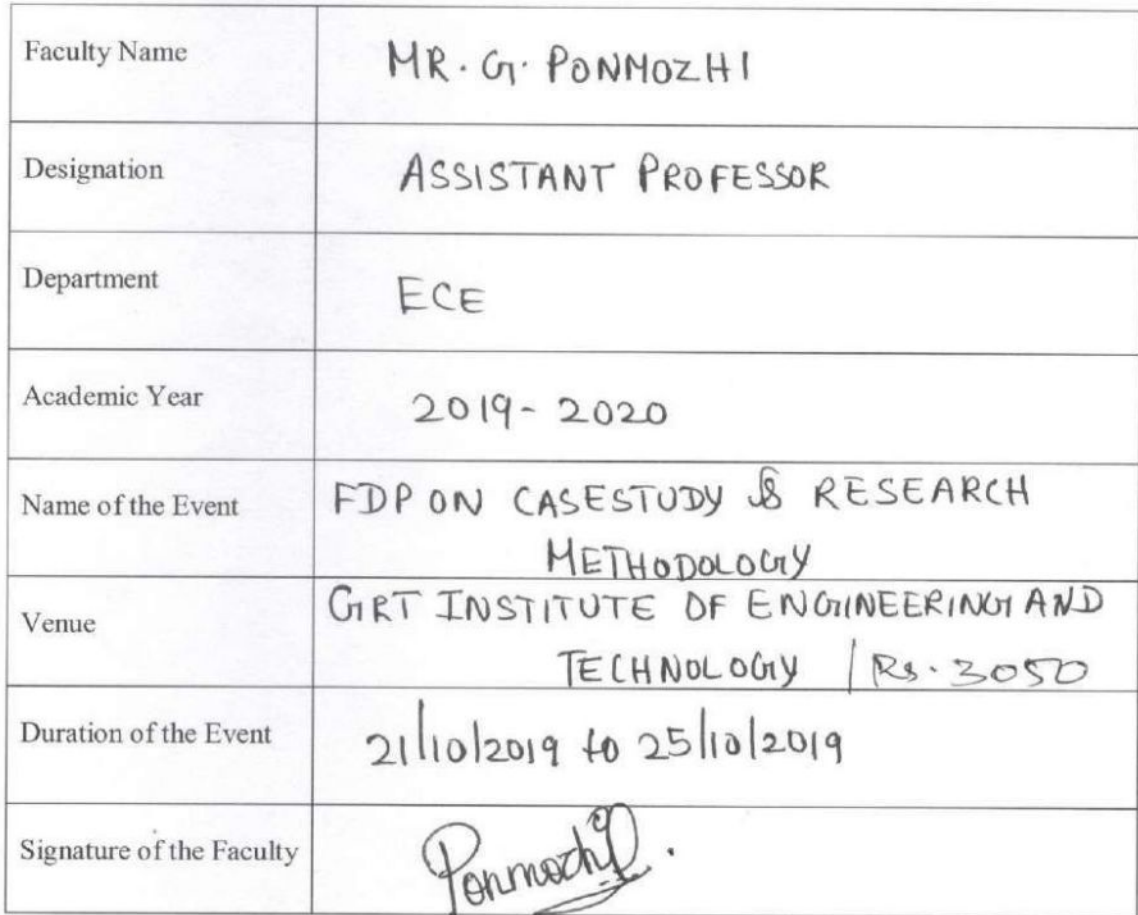 Faculty Name MR. G. PONMOZHI
Designation ASSISTANT PROFESSOR
Department ECE
Academic Year 2019-2020
Name of the Event FDP ON CASESTUDY & RESEARCH
METHODOLOGY
Venue GRT INSTITUTE OF ENGINEERING AND
TECHNOLOGY / Rs. 3050
Duration of the Event 21/10/2019 to 25/10/2019
Signature of the Faculty Ponmozhi.